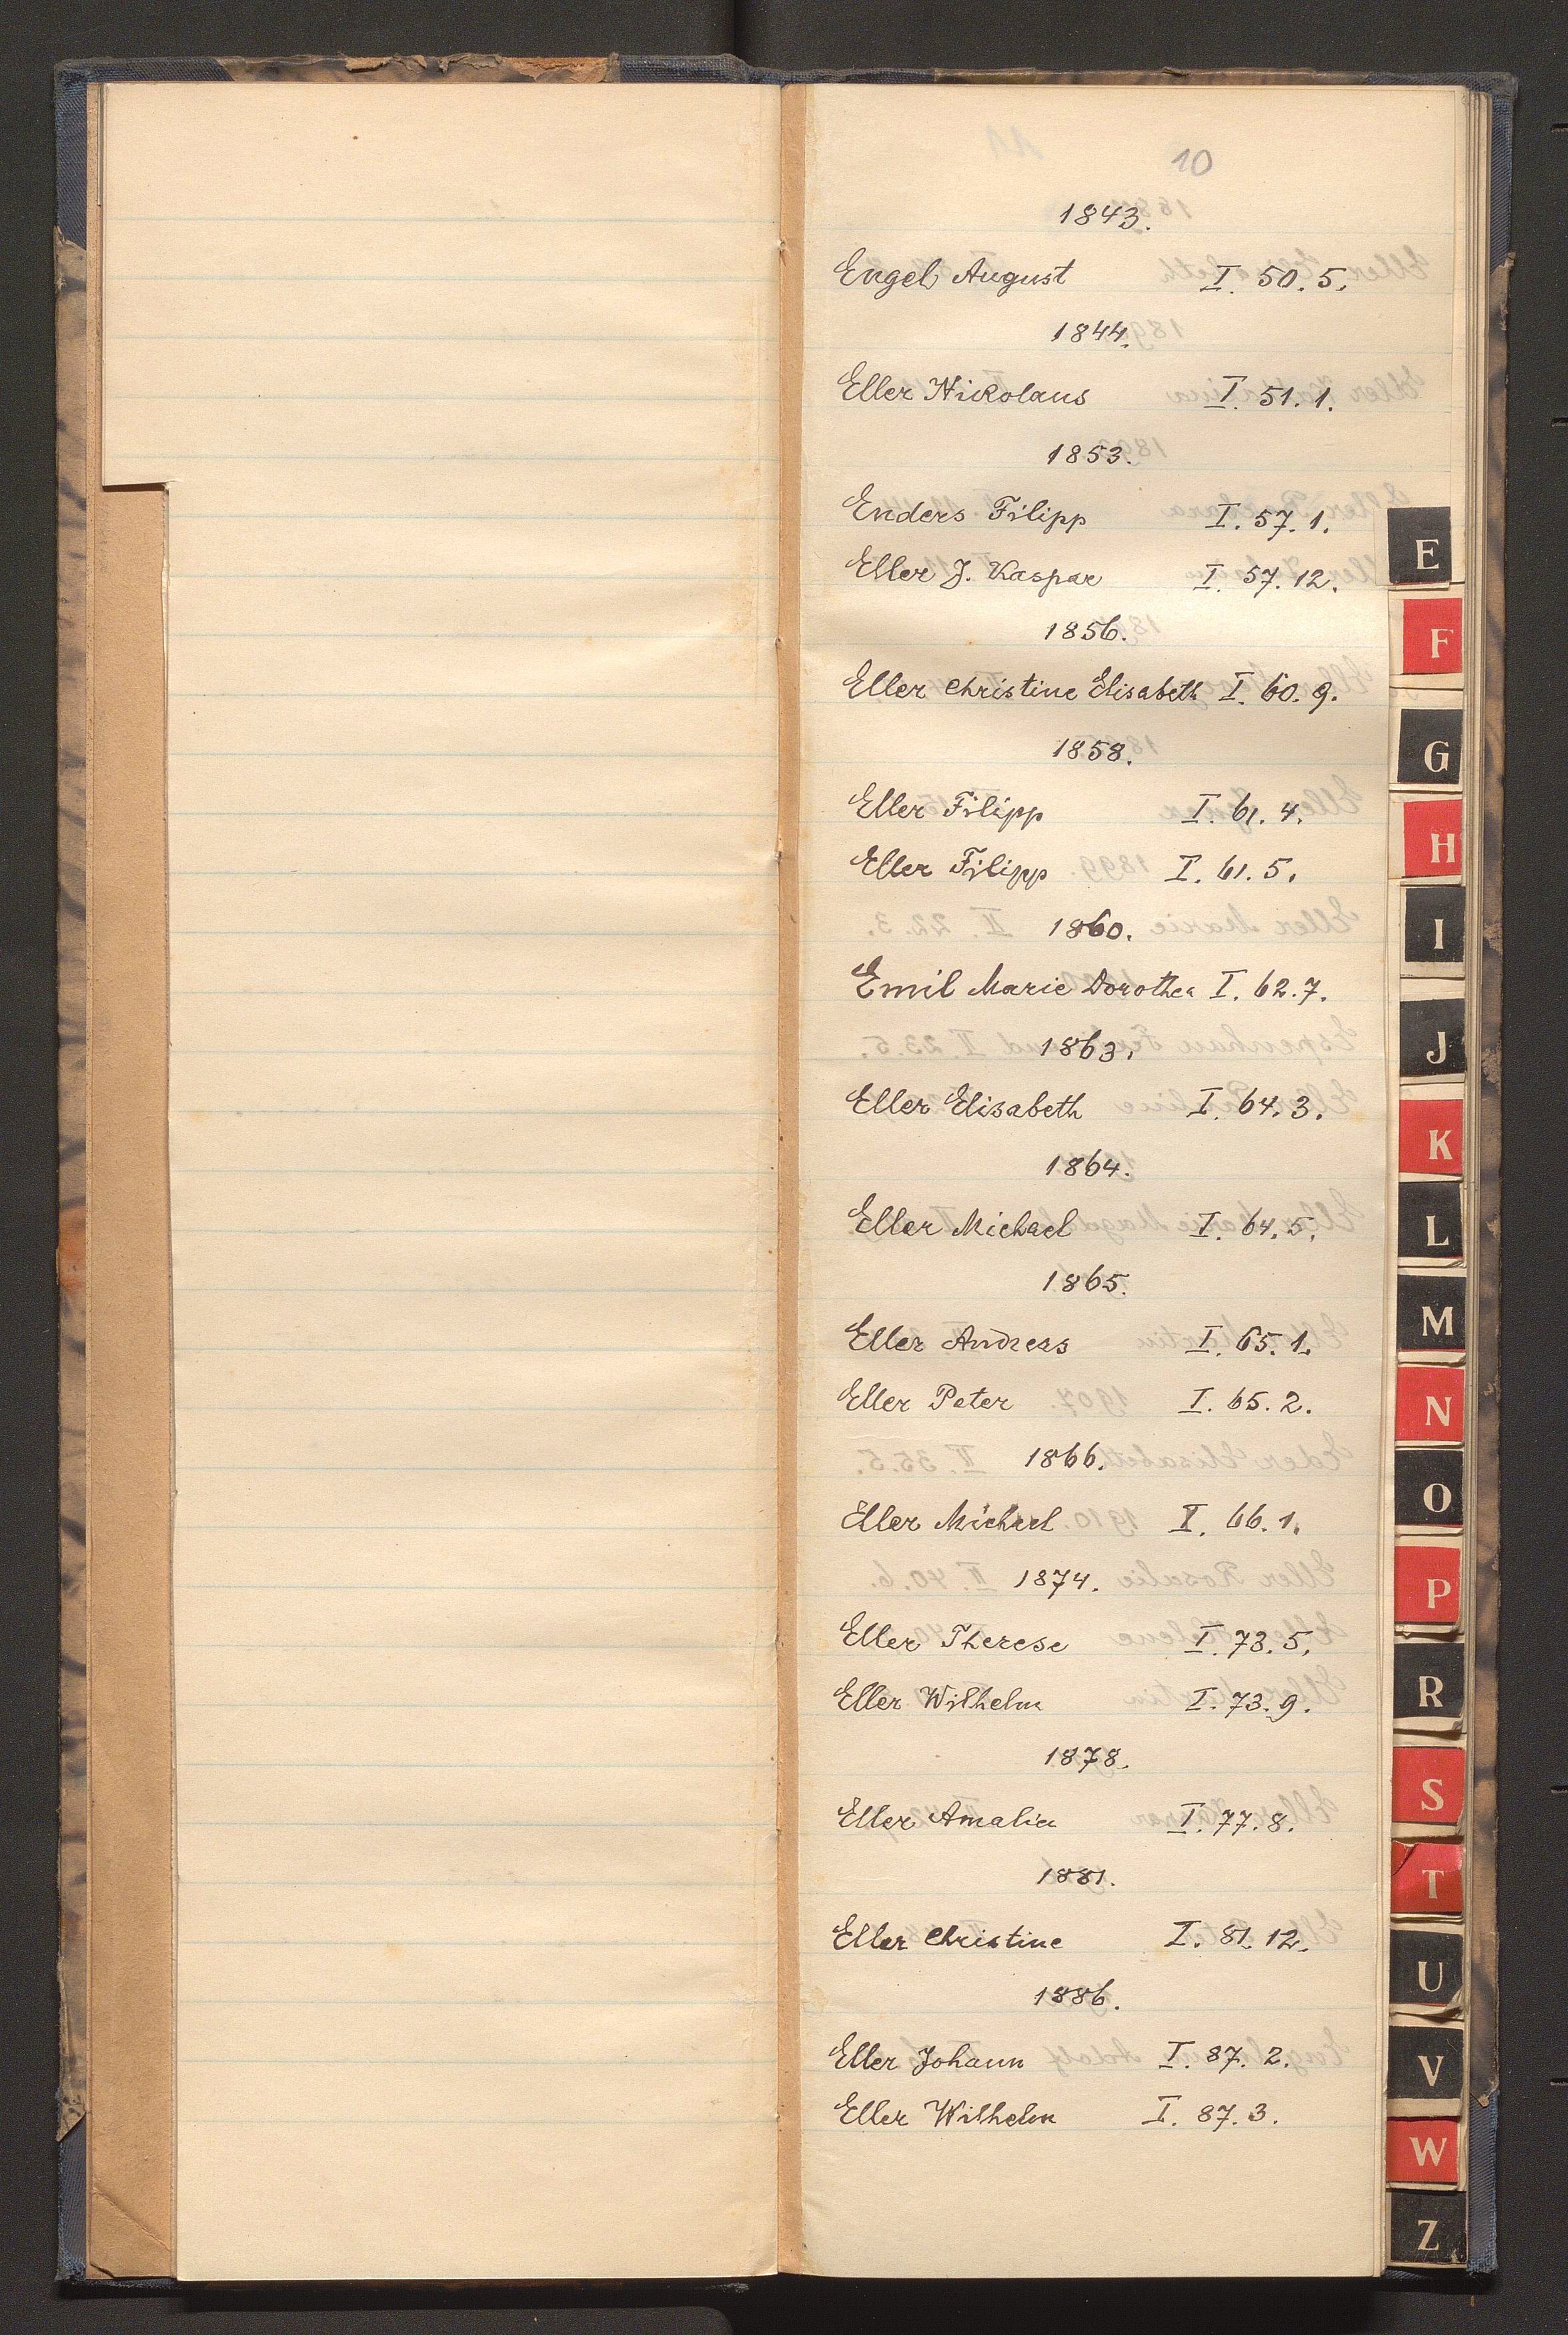 10
1843.
Engel August I. 50. 5.
1844.
Eller Nikolaus I. 51. 1.
1853.
Enders Filipp I. 57. 1.
Eller J. Kaspar I. 57. 12.
1856.
Eller Christine Elisabeth I. 60. 9.
1858.
Eller Filipp I. 61. 4.
Eller Filipp I. 61. 5.
1860.
Emil Marie Dorothea I. 62. 7.
1863.
Eller Elisabeth I. 64. 3.
1864.
Eller Michael I. 64. 5.
1865.
Eller Andreas I. 65. 1.
Eller Peter I. 65. 2.
1866.
Eller Michael I. 66. 1.
1874.
Eller Therese I. 73. 5.
Eller Wilhelm I. 73. 9.
1878.
Eller Amalia I. 77. 8.
1881.
Eller Christine I. 81. 12.
1886.
Eller Johann I. 87. 2.
Eller Wilhelm I. 87. 3.
E
F
G
H
I
J
K
L
M
N
O
P
R
S
T
U
V
W
Z